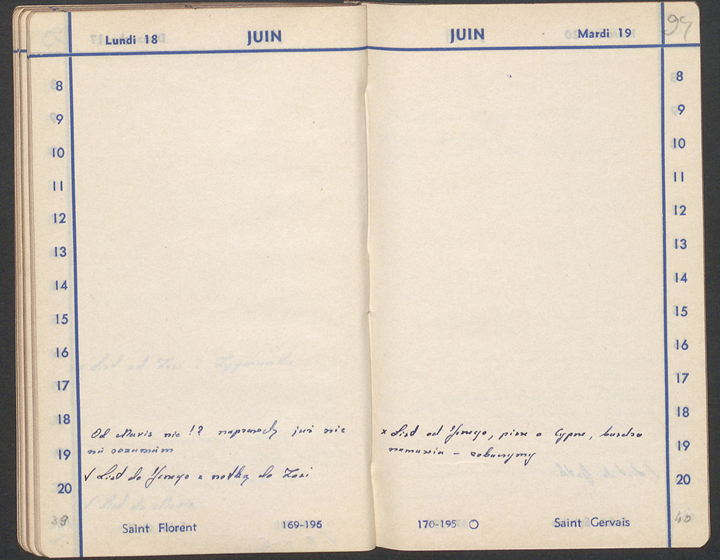 Lundi 18 JUIN
8
9
10
11
12
13
14
15
16
17
18
19
20
Od Marii nic !? naprawdę już nic
nie rozumiem
√ List do Jerzego z notką do Zosi
39 Saint Florent 169-196
JUIN Mardi 19 94
8
9
10
11
12
13
14
15
16
17
18
19
20
x List od Jerzego, pisze o Cyprze, bardzo
namawia – zobaczymy
170-195 Saint Gervais 40